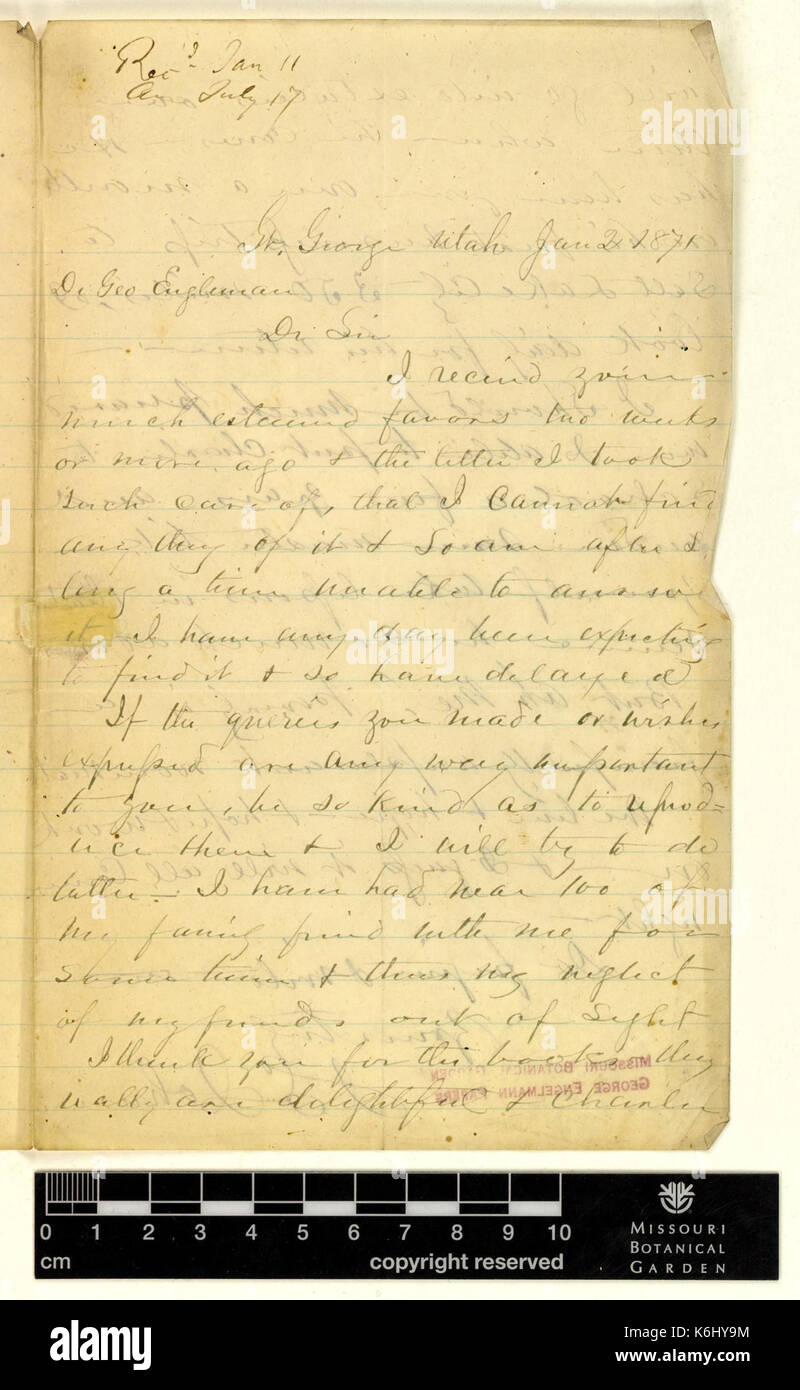 Recd Jan 11
An July 17
St. George Utah Jan 2 1871
Dr Geo Engleman
Dr Sir
I recievd your
much esteemed favors two weeks
or more ago & the letter I took
such care of, that I cannot find
any thing of it & so am after so
long a time unable to answer
it I have any day been expecting
to find it & so have delayed
If the queries you made or wishes
expressed are any way important
to you, be so kind as to reprod=
uce them & I will try to do
better – I have had near 100 of
my family friend with me for
some time & thus my neglect
of my friends out of sight
I thank you for the books they
really are delightful & Charley
MISSOURI BOTANICAL GARDEN
GEORGE ENGELMANN PAPERS
0 1 2 3 4 5 6 7 8 9 10
cm copyright reserved
MISSOURI
BOTANICAL
GARDEN
a alamy stock photo
K6HY9M
www.alamy.com